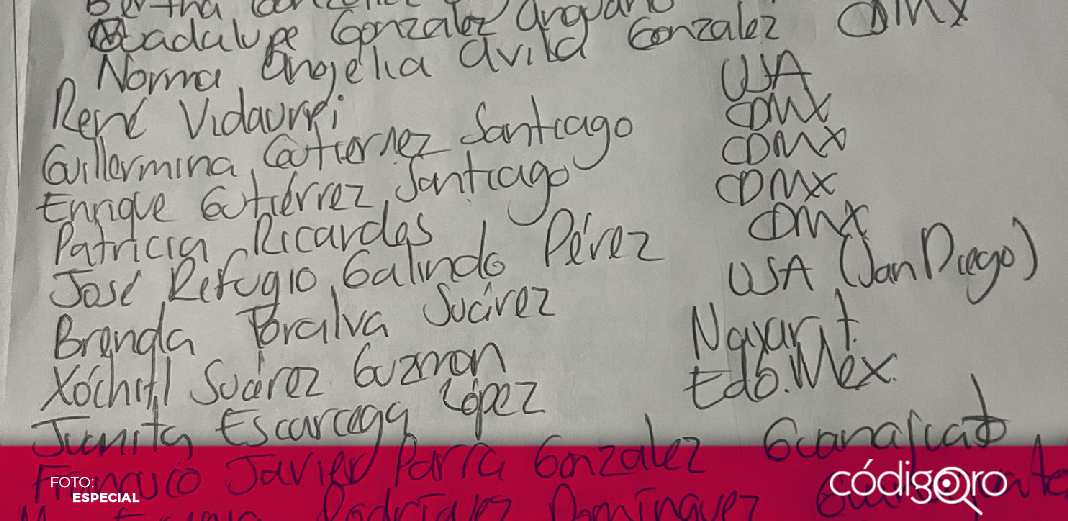 Bertha
Guadalupe Gonzalez Anguano CDMX
Norma Angelia Avila Gonzalez
René Vidaurri USA
Guillermina Gutierrez Santiago CDMX
Enrique Gutiérrez Santiago CDMX
Patricia Ricardes CDMX
José Refugio Galindo Pérez CDMX
Brenda Toralva Suárez USA (San Diego)
Xóchitl Suárez Guzmon Nayarit.
Juanita Escarcega López Edo. Mex.
Francisco Javier Parra Gonzalez Guanajuato
Rodríguez Domínguez
FOTO:
ESPECIAL
códigoqro